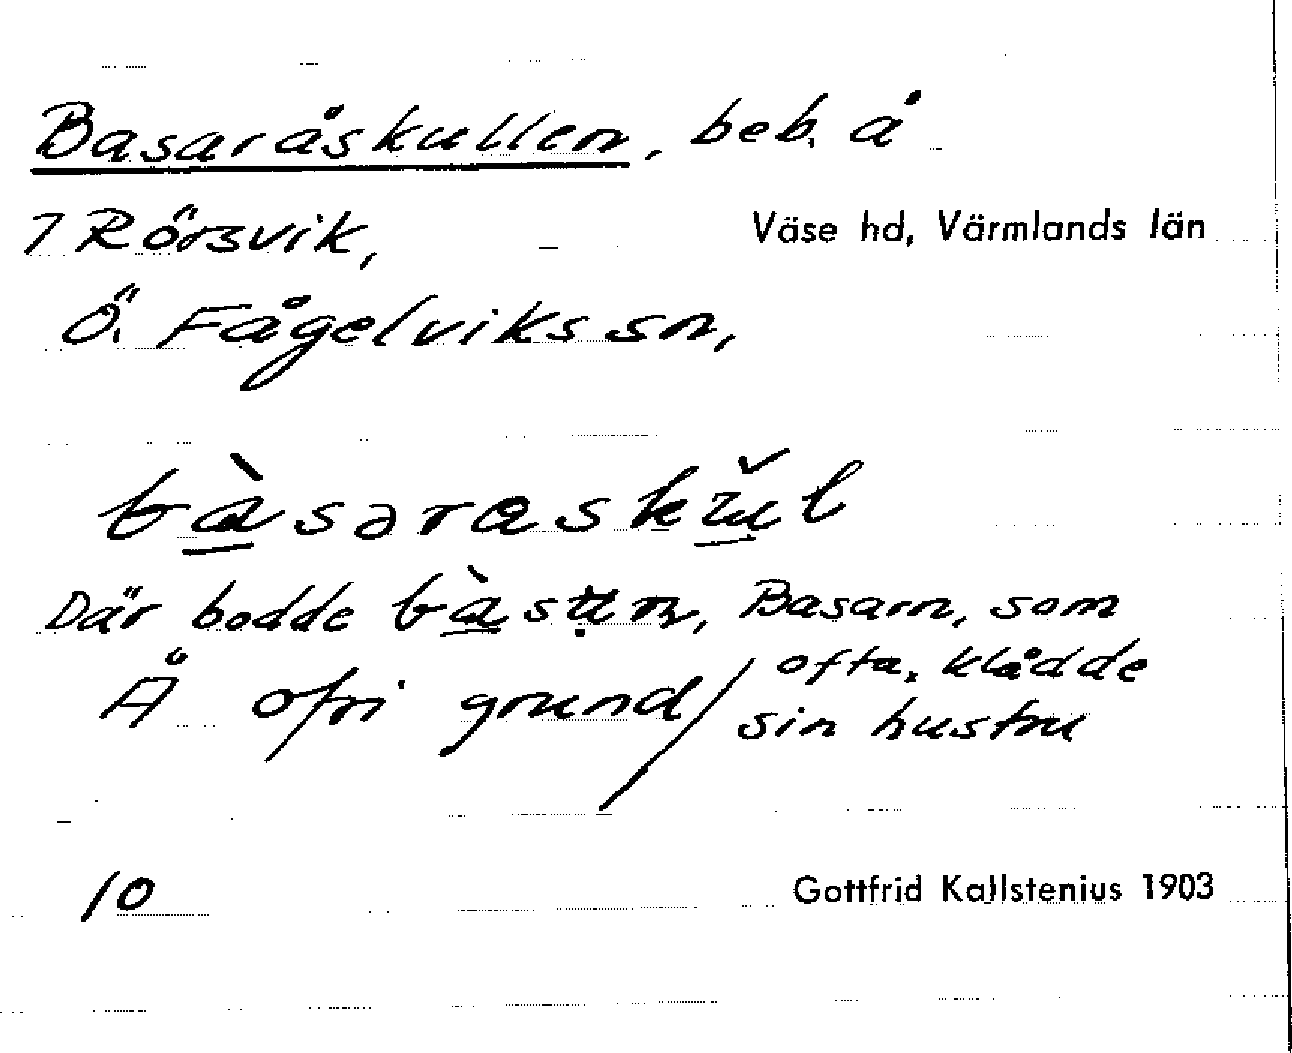 Basaråskullen, beb. å
7 Rörsvik,
Väse hd, Värmlands län
Ö. Fågelviks sn,
bàsəraskŭl
Där bodde bàsun, Basarn, som
ofta klådde
sin hustru
Å ofri grund
10
Gottfrid Kallstenius 1903